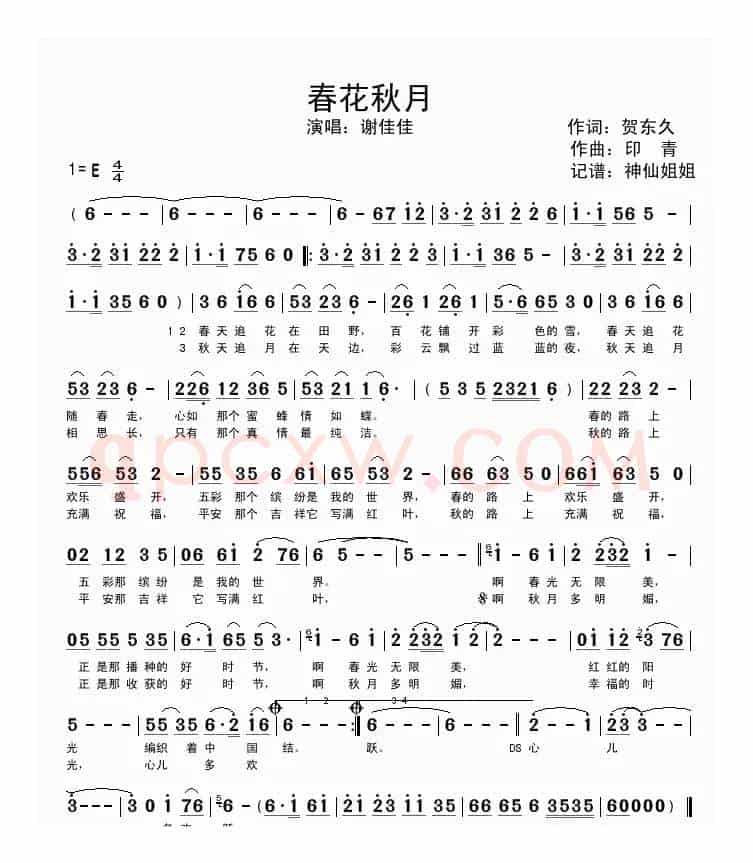 春花秋月
演唱：谢佳佳
作词：贺东久
作曲：印 青
1=E 4/4
记谱：神仙姐姐
(6 - - - | 6 - - - | 6 - - - | 6 - 67 12 | 3·2 31 2 2 6 | 1·1 56 5 -
3·2 31 22 2 | 1·1 75 6 0 |: 3·2 31 2 2 | 3·2 31 2 2 | 1·1 36 5 - | 3·2 31 22 2
1·1 35 6 0 ) | 3 6 16 6 | 53 23 6 - | 26 1 26 1 | 5·6 65 3 0 | 3 6 16 6
1 2 春天追花在田野，百花铺开彩色的雪，春天追花
3 秋天追月在天边，彩云飘过蓝蓝的夜，秋天追月
53 23 6 - | 226 12 36 5 | 53 21 1 6· | ( 5 35 5 2321 6 ) | 22 23 2 -
随春走，心如那个蜜蜂情如蝶。春的路上
相思长，只有那个真情最纯洁。秋的路上
qpcxw.COM
556 53 2 - | 55 35 6 61 | 65 35 3 - | 66 66 53 2 0 | 661 63 5 0
欢乐盛开，五彩那个缤纷是我的世界，春的路上欢乐盛开，
充满祝福，平安那个吉祥它写满红叶，秋的路上充满祝福，
02 12 3 5 | 06 61 2 76 | 6 5 - - | 5 - - - | 1 - 6 1 | 2 232 1 -
五彩那缤纷是我的世界。啊春光无限美，
平安那吉祥它写满红叶，啊秋月多明媚，
05 55 5 35 | 6·1 65 5 3· | 1 - 6 1 | 2 232 1 2 | 1 - - - | 01 12 3 76
正是那播种的好时节，啊春光无限美，红红的阳
正是那收获的好时节，啊秋月多明媚，幸福的时
1 2 3-4
5 - - - | 55 35 6·2 16 | 6 - - - :| 6 - - - | 6 - - - | 2 - - 1 | 23 3 - -
光 编织着中国结。跃。DS心 儿
光，心儿多欢
3 - - - | 3 0 1 76 | 6 - - - (6·1 61 | 212 12 12 | 4·5 24 5 | 66 56 3535 | 60000 )